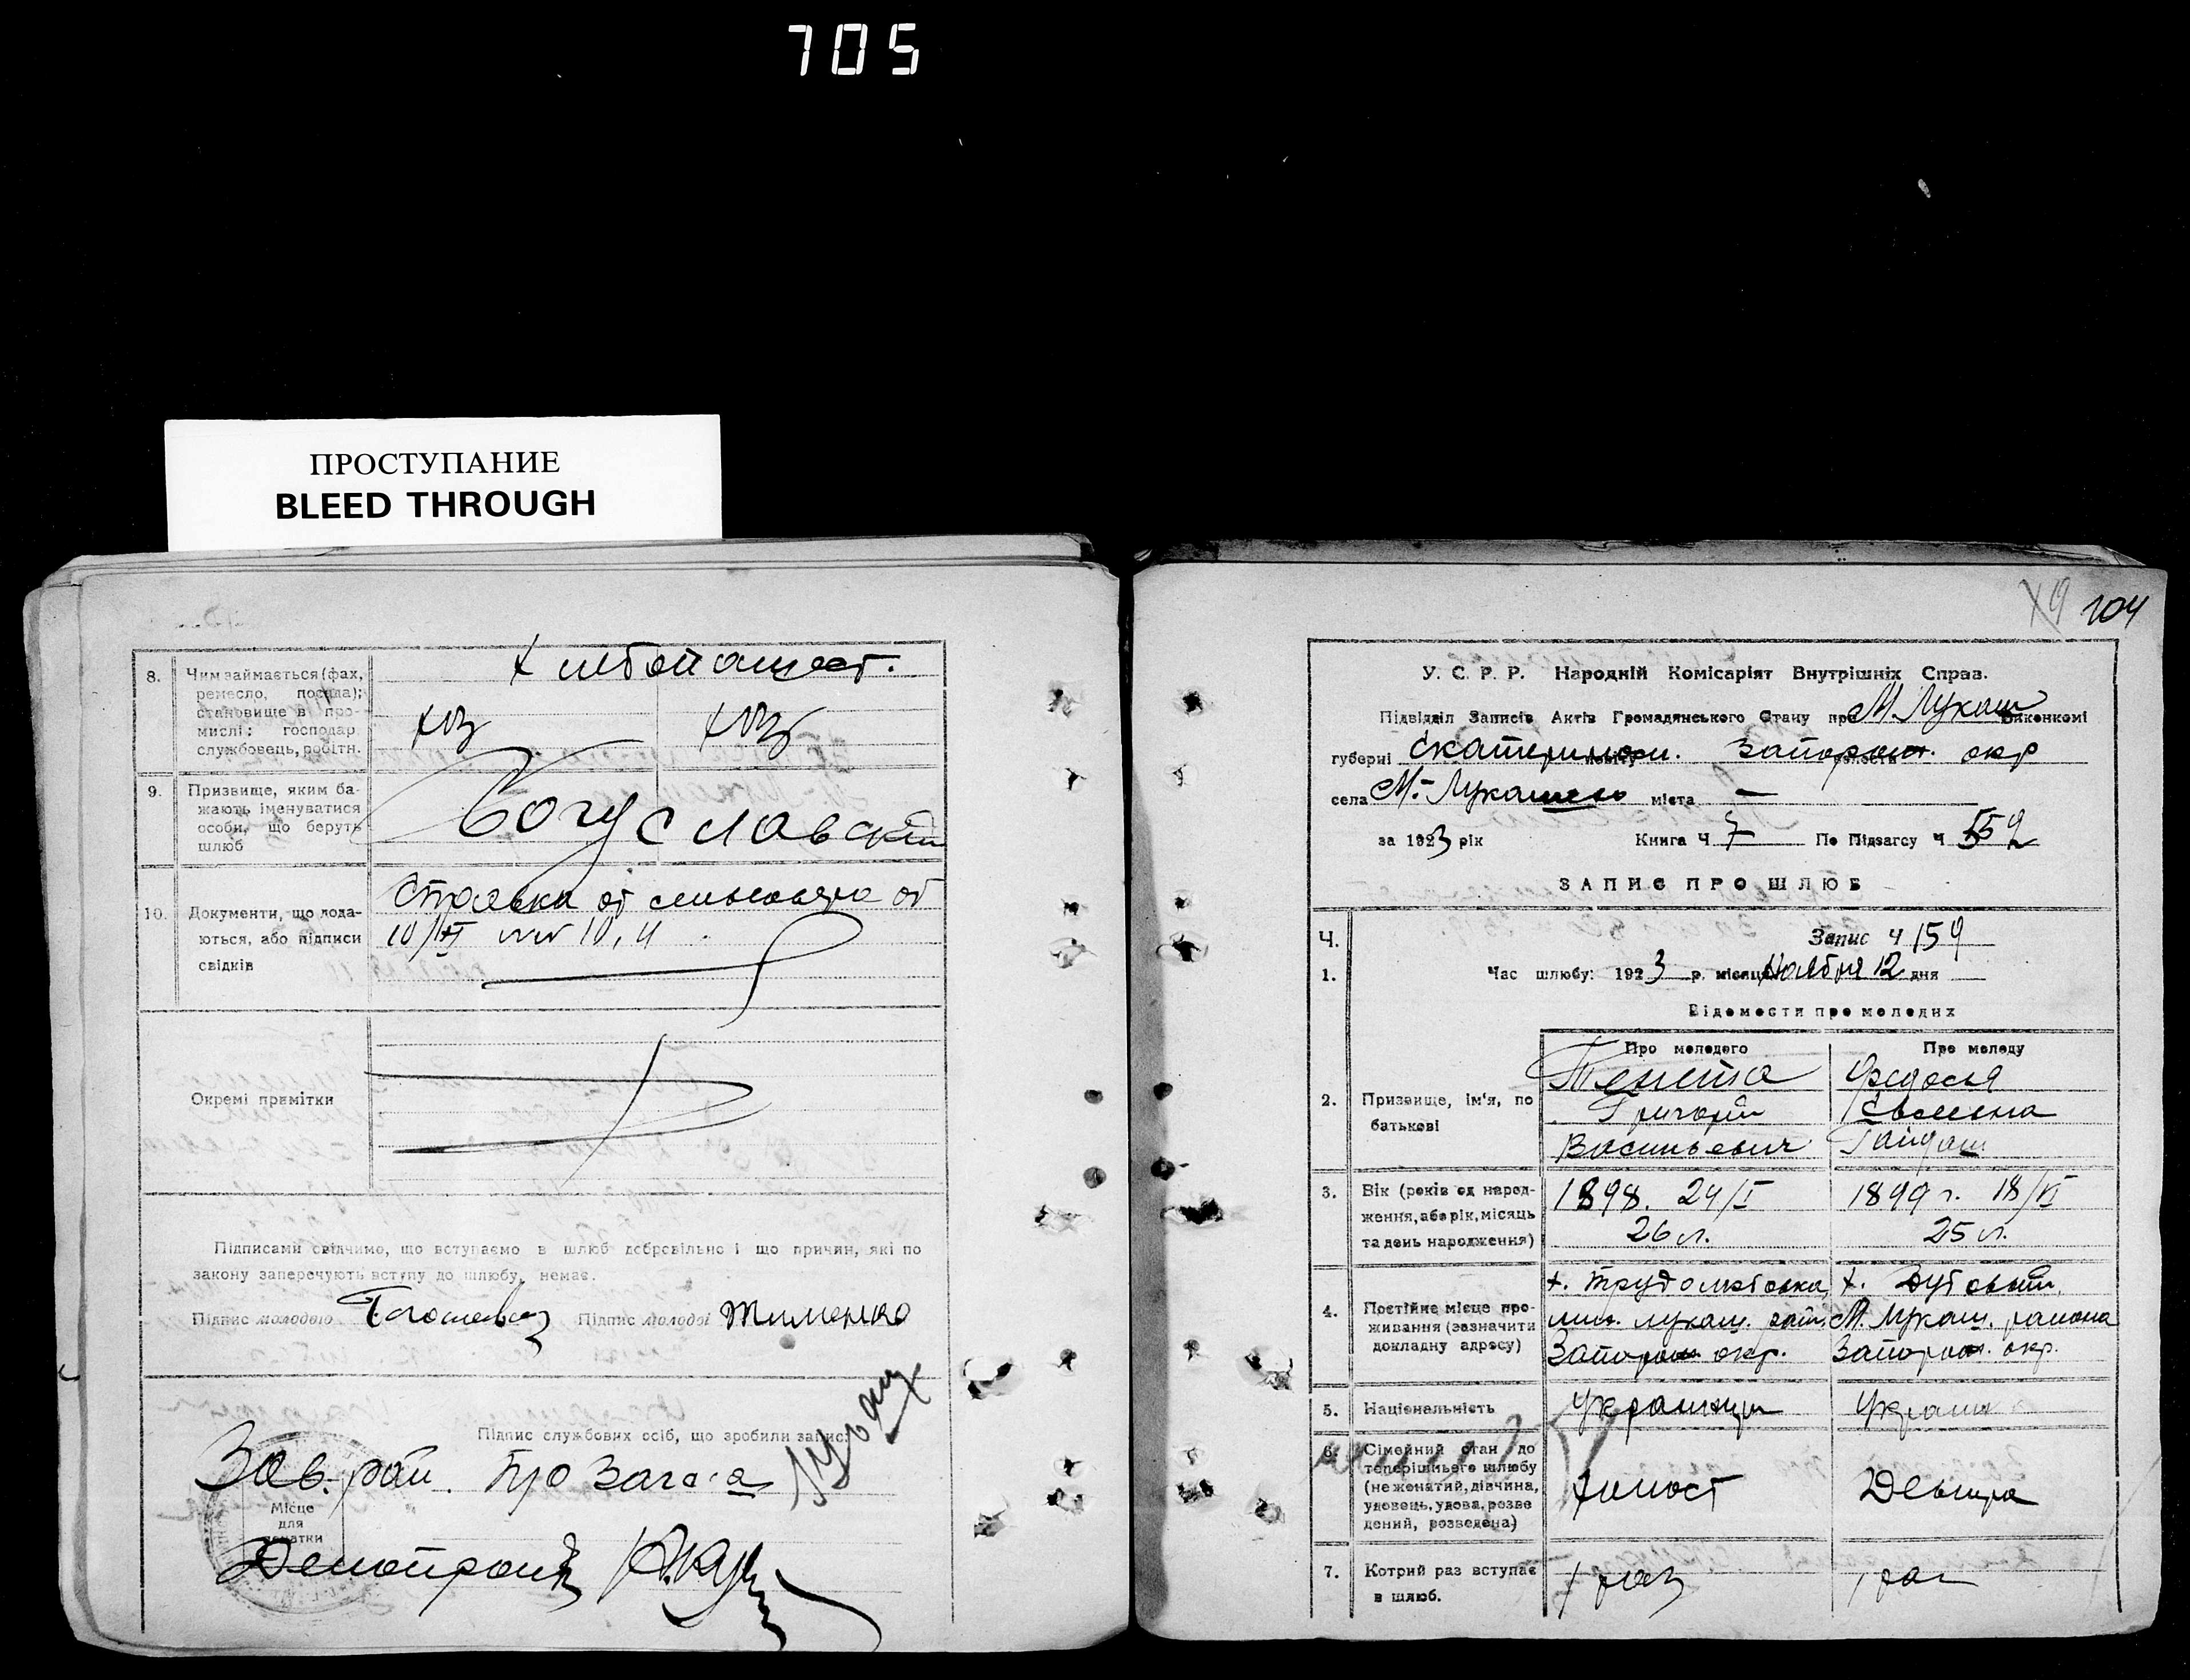 705
ПРОСТУПАНИЕ
BLEED THROUGH
8. Чим займається (фах,
ремесло, посада);
становище в про-
мислі: господар
службовець, робітн.
хлебопашест.
хоз хоз
9. Призвище, яким ба-
жають іменуватися
особи, що беруть
шлюб
Богуславский
10. Документи, що дода-
ються, або підписи
свідків
Справка от от
10/ 10, 11
Окремі примітки
Підписами свідчимо, що вступаємо в шлюб добровільно і що причин, які по
закону заперечують вступу до шлюбу, немає.
Підпис молодого Підпис молодої Тименко
Підпис службових осіб, що зробили запис:
Зав. рай. Загса
Місце
для
печатки
104
У. С. Р. Р. Народній Комісаріят Внутрішніх Справ.
Підвідділ Записів Актів Громадянського Стану при М. Лукаш Виконкомі
губерні Екатеринос. Запорож. окр
села М.-Лукашево міста —
за 1923 рік Книга Ч 7 По Підзагсу Ч 559
ЗАПИС ПРО ШЛЮБ
Ч. Запис ч 159
1. Час шлюбу: 1923 р. місяця Ноября 12 дня
Відомости про молодих
Про молодого Про молоду
2. Призвище, ім'я, по
батькові
Тенета
Григорий
Васильевич
Федосья
Гайдаш
3. Вік (років од народ-
ження, або рік, місяць
та день народження)
1898. 24/I
26 л.
1899 г. 18/VI
25 л.
4. Постійне місце про-
живання (зазначити
докладну адресу)
х. Трудолюбовка,
лукаш. рай.
Запорож. окр.
х.
М. Лукаш. района
Запорож. окр.
5. Національність
Украинец Украин
6. Сімейний стан до
теперішнього шлюбу
(не женатий, дівчина,
удовець, удова, розве
дений, розведена)
холост Девица
7. Котрий раз вступає
в шлюб.
1 раз 1 раз